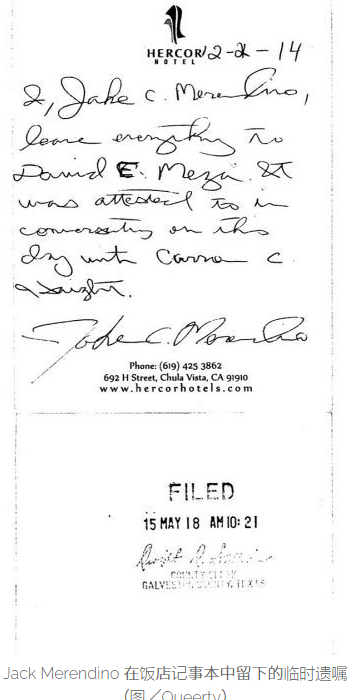 HERCOR
HOTEL
12-21-14
I, Jake C. Merendino,
leave everything to
David E. Meza. It
was attested to in
conversation on this
day with
C.
Jake C. Merendino
Phone: (619) 425 3862
692 H Street, Chula Vista, CA 91910
www.hercorhotels.com
FILED
15 MAY 18 AM 10: 21
COUNTY CLERK
GALVESTON COUNTY, TEXAS
Jack Merendino 在饭店记事本中留下的临时遗嘱
(图／Queerty)